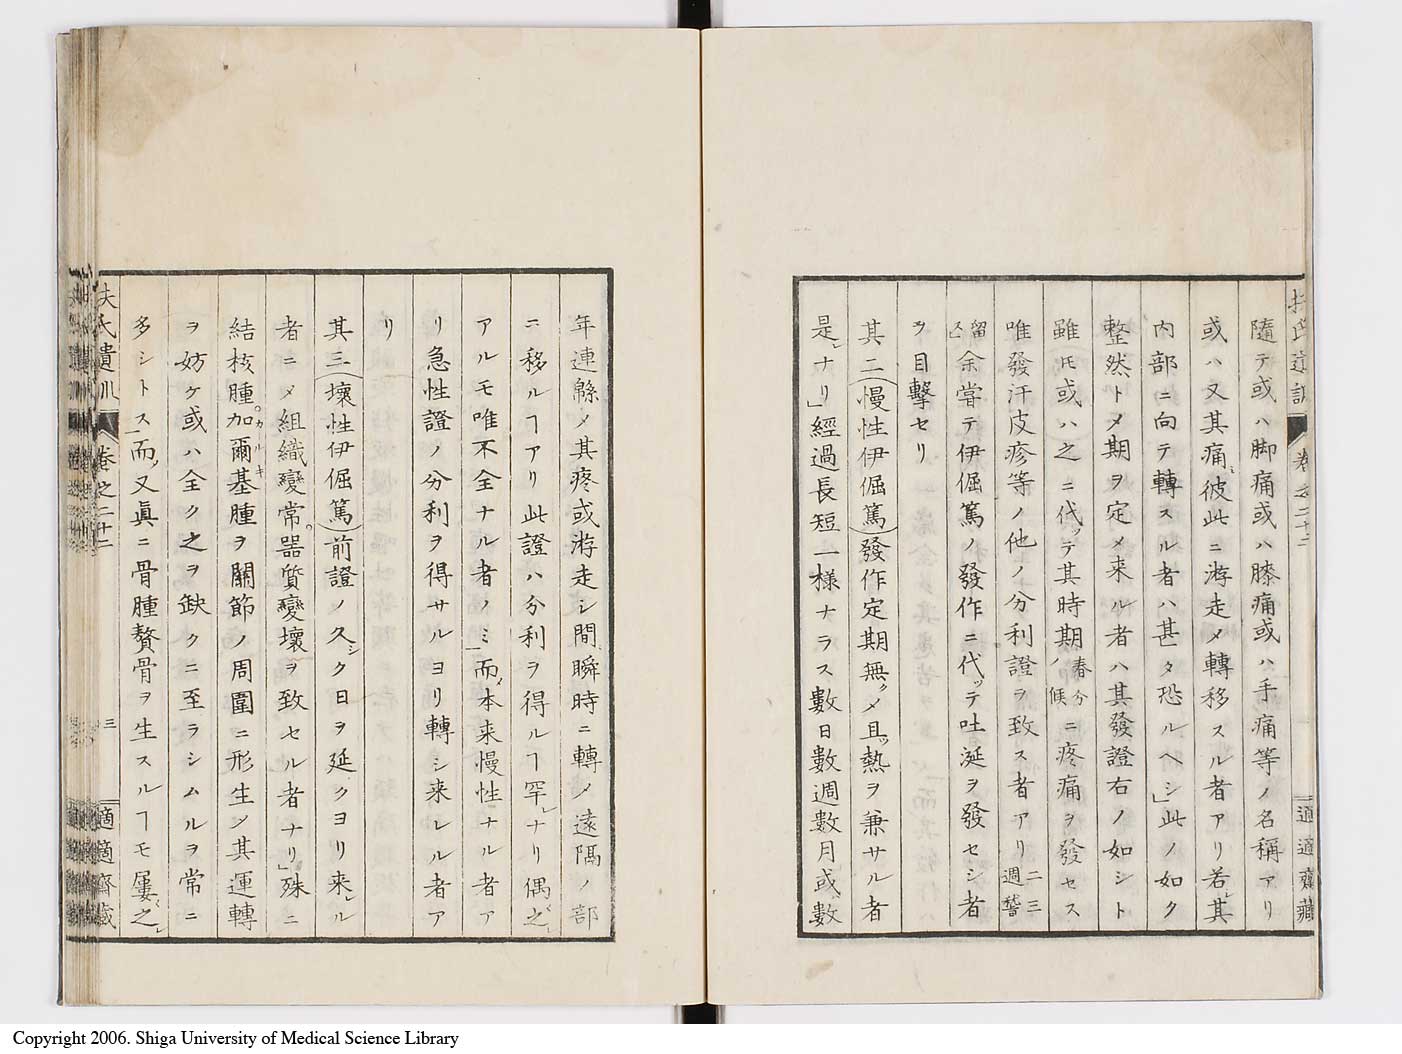 隨テ或ハ脚痛或ハ膝痛或ハ手痛等ノ名稱アリ
或ハ又其痛彼此ニ游走〆轉移スル者アリ若シ其
内部ニ向テ轉スル者ハ甚タ恐ルヘシ」此ノ如ク
整然ト〆期ヲ定メ来ル者ハ其發證右ノ如シト
雖𪜈或ハ之ニ代ッテ其時期春分ノ候ニ疼痛ヲ發セス
唯發汗皮疹等ノ他ノ分利證ヲ致ス者アリ二三週
留ス余嘗テ伊倔篤ノ發作ニ代ッテ吐涎ヲ發セシ者
ヲ目擊セリ
其二(慢性伊倔篤)發作定期無ク〆且ッ熱ヲ兼サル者
是ナリ」經過長短一様ナラス數日數週數月或ハ數
年連緜〆其疼或游走シ間瞬時ニ轉〆遠隔ノ部
ニ移ルヿアリ此證ハ分利ヲ得ルヿ罕レナリ偶之レ
アルモ唯不全ナル者ノミ而〆本来慢性ナル者ア
リ急性證ノ分利ヲ得サルヨリ轉シ来レル者ア
リ
其三(壞性伊倔篤)前證ノ久シク日ヲ延クヨリ来ル
者ニ〆組織變常。器質變壞ヲ致セル者ナリ」殊ニ
結核腫。加爾基カルキ腫ヲ關節ノ周圍ニ形生〆其運轉
ヲ妨ケ或ハ全ク之ヲ缺クニ至ラシムルヲ常ニ
多シトス而〆又眞ニ骨腫贅骨ヲ生スルヿモ屢之レ
扶氏遺訓 卷之二十二 三 適適齋藏
Copyright 2006. Shiga University of Medical Science Library